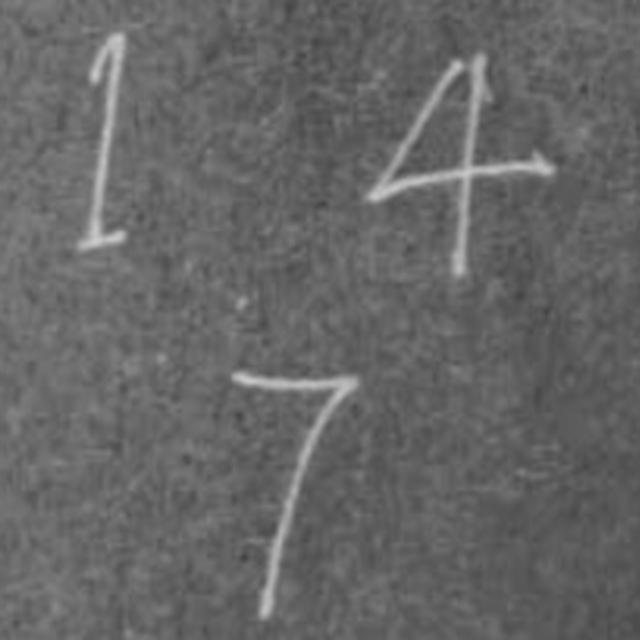 1 4
7